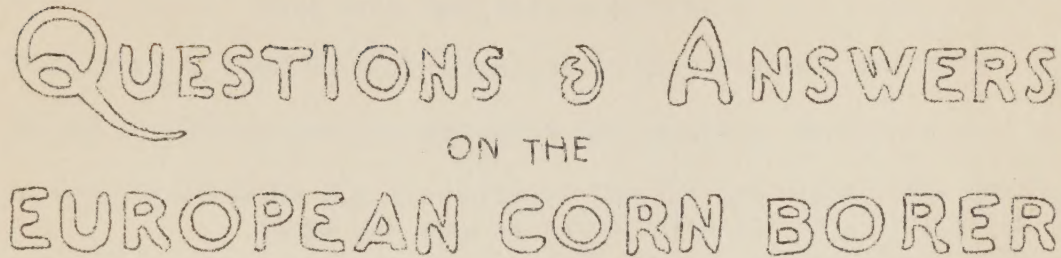 QUESTIONS & ANSWERS
ON THE
EUROPEAN CORN BORER